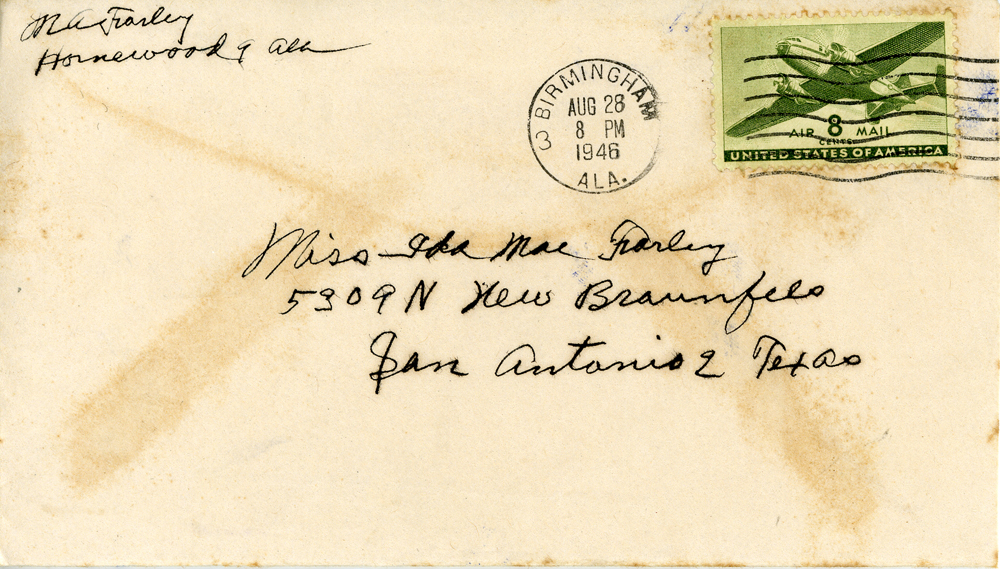 M A Farley
Homewood 9 Ala
BIRMINGHAM
AUG 28
8 PM
1946
3
ALA.
AIR 8 MAIL
CENTS
UNITED STATES OF AMERICA
Miss Ida Mae Farley
5309 N New Braunfels
San Antonio 2 Texas